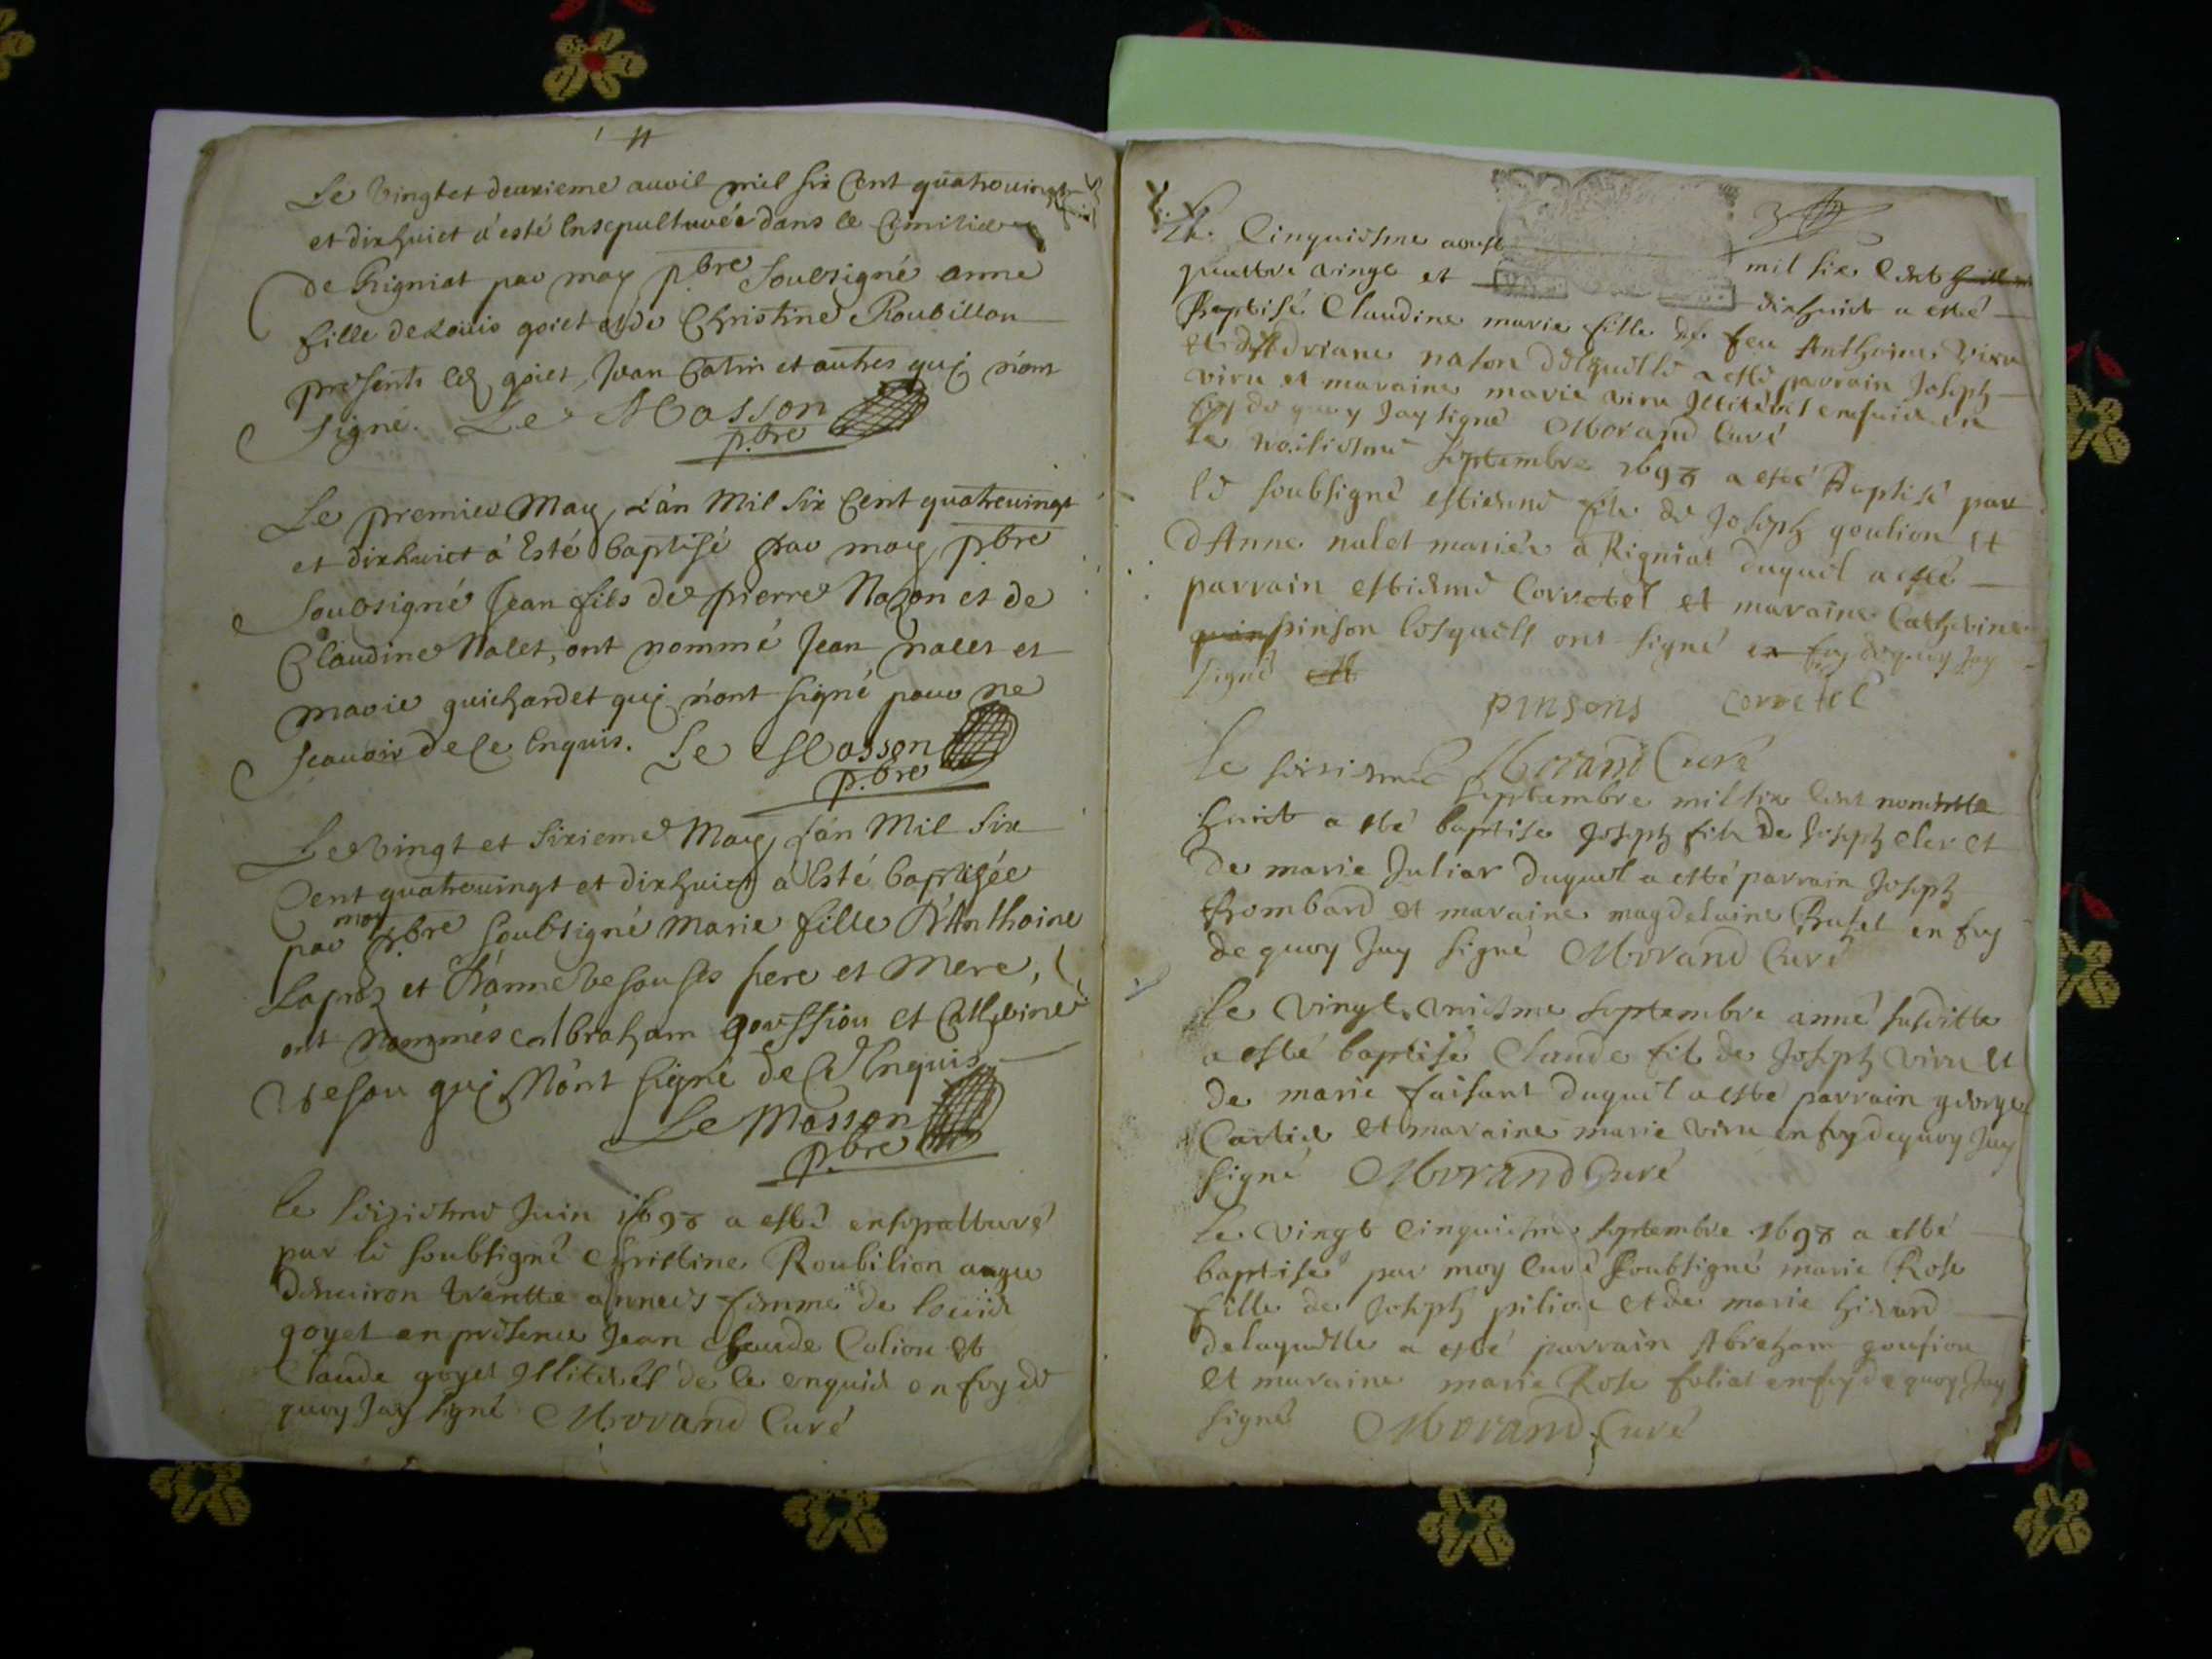 Le vingt et deuxieme avvil mil six Cent quatrevingt
et dixhuict a esté Ensepulturée dans le Cemitiere
de Rigniat par moy pbre soubsigné anne
fille de Louis goiet et de Christine Roubillon
presents led goiet, Jean Catin et autres quj n'ont
signé. Le Masson
p.bre
Le premier May, L'an Mil six Cent quatrevingt
et dixhuict a Esté baptisé par moy pbre
soubsigné Jean fils de pierre Nazon et de
Claudine Nalet, ont nommé Jean nalet et
marie guichardet quj n'ont signé pour ne
scauoir de ce Enquis. Le Masson
p.bre
Le vingt et sixieme May, L'an Mil six
Cent quatrevingt et dixhuict a Esté baptisée
par moy pbre soubsigné marie fille D'Anthoine
Laproz et D'anne vesou ses pere et mere,
ont nommés Abraham goussion et Catherine
vesou quj N'ont signé de ce Enquis
Le Masson
p.bre
le seiziesme Juin 1698 a esté ensepultuvé
par le soubsigné Christine Roubilion augee
denuiron trentte annees femme de louis
goyet en presence Jean Claude Colion et
Claude goyet Illiteres de ce enquis en foy de
quoy Jay signé Morand Curé
Le Cinquiesme aoust mil six Cent
quattre vingt et dixhuict a esté
Baptisé Claudine marie fille de feu Anthoine viru
et Adriane nason delquelle a esté parrain Joseph
viru et maraine marie viru Illiteres enquis en
foy de quoy Jay signé Morand Curé
Le septembre 1698 a esté Baptisé par
le soubsigné estienne fils de Joseph goulion et
d'Anne nalet mariés a Rigniat duquel a esté
parrain estienne Corretel et maraine Catherine
pinson lesquels ont signé en foy de quoy Jay
signé
pinsons Corretel
Morand Curé
le seisiesme septembre mil six Cent nonantte
huict a esté baptise Joseph fils de Joseph cler et
de marie Juliar duquel a esté parrain Joseph
thombard et maraine magdelaine Buset en foy
de quoy Jay signé Morand Curé
le vingt uniesme septembre anné susditte
a esté baptisé Claude fils de Joseph viru et
de marie faisant duquel a esté parrain george
Cartier et maraine marie viru en foy de quoy Jay
signé Morand Curé
le vingt Cinquiesme septembre 1698 a esté
baptisé par moy Curé soubsigné marie Rose
fille de Joseph et de marie
delaquelle a esté parrain Abraham gousion
et maraine marie Rose foliat en foy de quoy Jay
signé Morand Curé